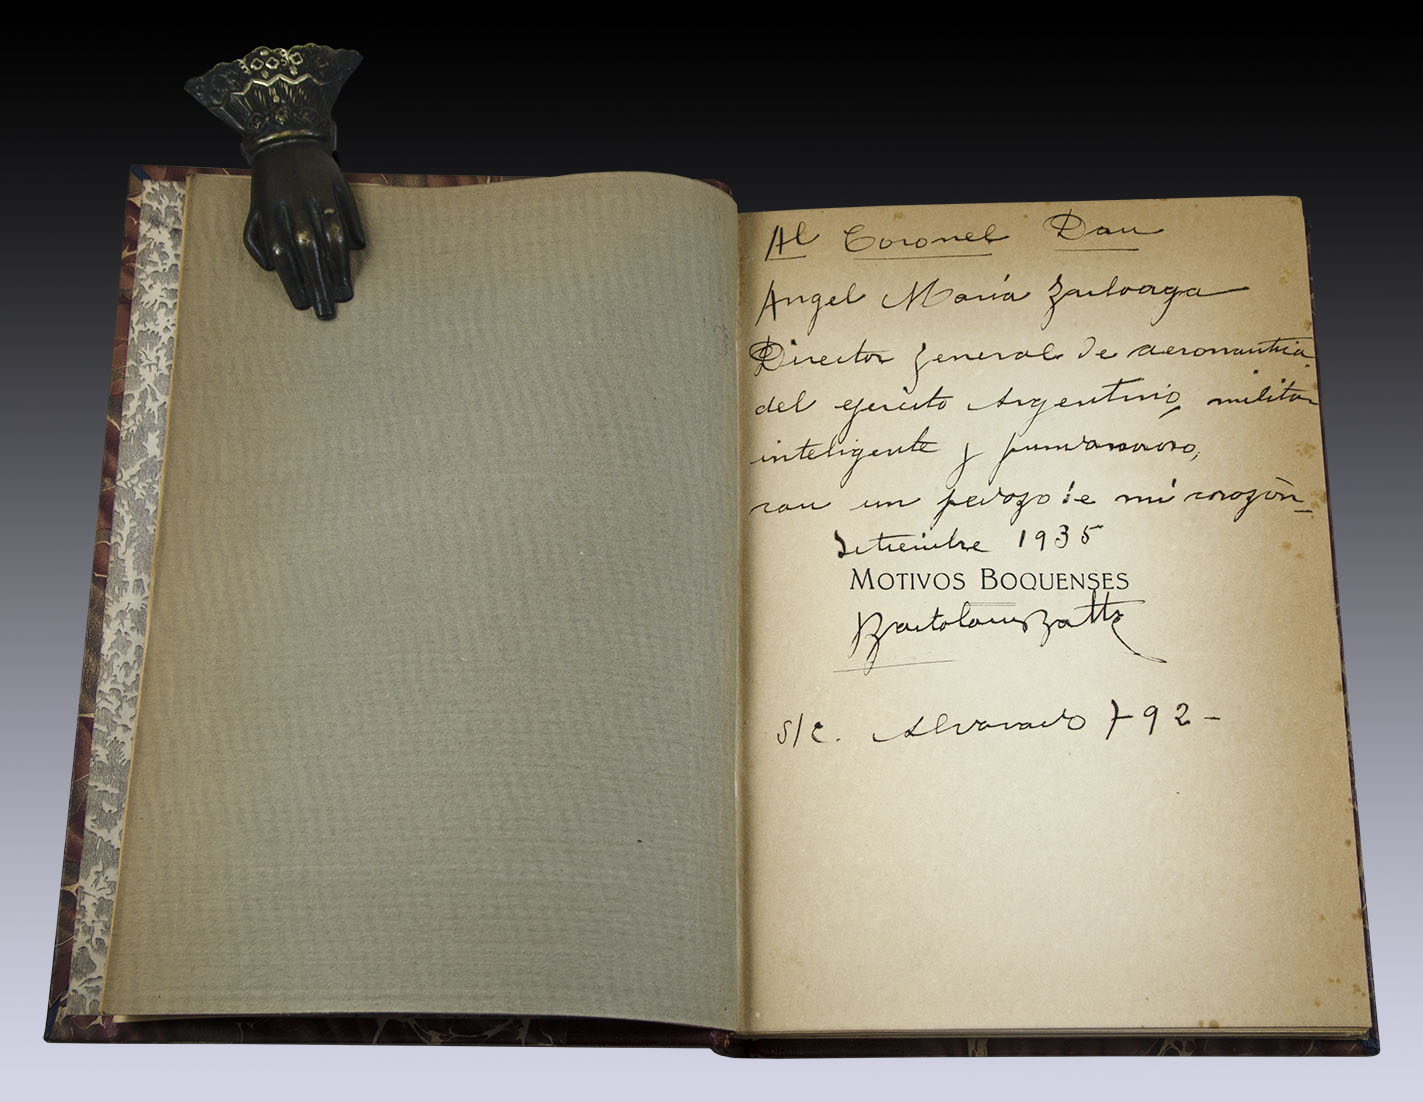 Al Coronel Don
Angel María Zuloaga
Director general de aeronautica
del ejército Argentino, militar
inteligente y pundonoroso,
con un pedazo de mi corazón_
Setiembre 1935
MOTIVOS BOQUENSES
Bartolomé Botto
S/c. Alvarado 792-